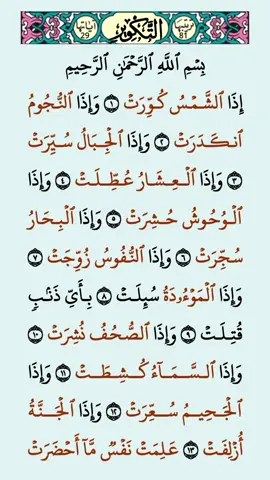 ترتيبها 81 التكوير آياتها 29
بِسْمِ ٱللَّهِ ٱلرَّحْمَٰنِ ٱلرَّحِيمِ
إِذَا ٱلشَّمْسُ كُوِّرَتْ ١ وَإِذَا ٱلنُّجُومُ
ٱنكَدَرَتْ ٢ وَإِذَا ٱلْجِبَالُ سُيِّرَتْ
٣ وَإِذَا ٱلْعِشَارُ عُطِّلَتْ ٤ وَإِذَا
ٱلْوُحُوشُ حُشِرَتْ ٥ وَإِذَا ٱلْبِحَارُ
سُجِّرَتْ ٦ وَإِذَا ٱلنُّفُوسُ زُوِّجَتْ ٧
وَإِذَا ٱلْمَوْءُۥدَةُ سُئِلَتْ ٨ بِأَىِّ ذَنۢبٍ
قُتِلَتْ ٩ وَإِذَا ٱلصُّحُفُ نُشِرَتْ ١٠
وَإِذَا ٱلسَّمَآءُ كُشِطَتْ ١١ وَإِذَا
ٱلْجَحِيمُ سُعِّرَتْ ١٢ وَإِذَا ٱلْجَنَّةُ
أُزْلِفَتْ ١٣ عَلِمَتْ نَفْسٌ مَّآ أَحْضَرَتْ